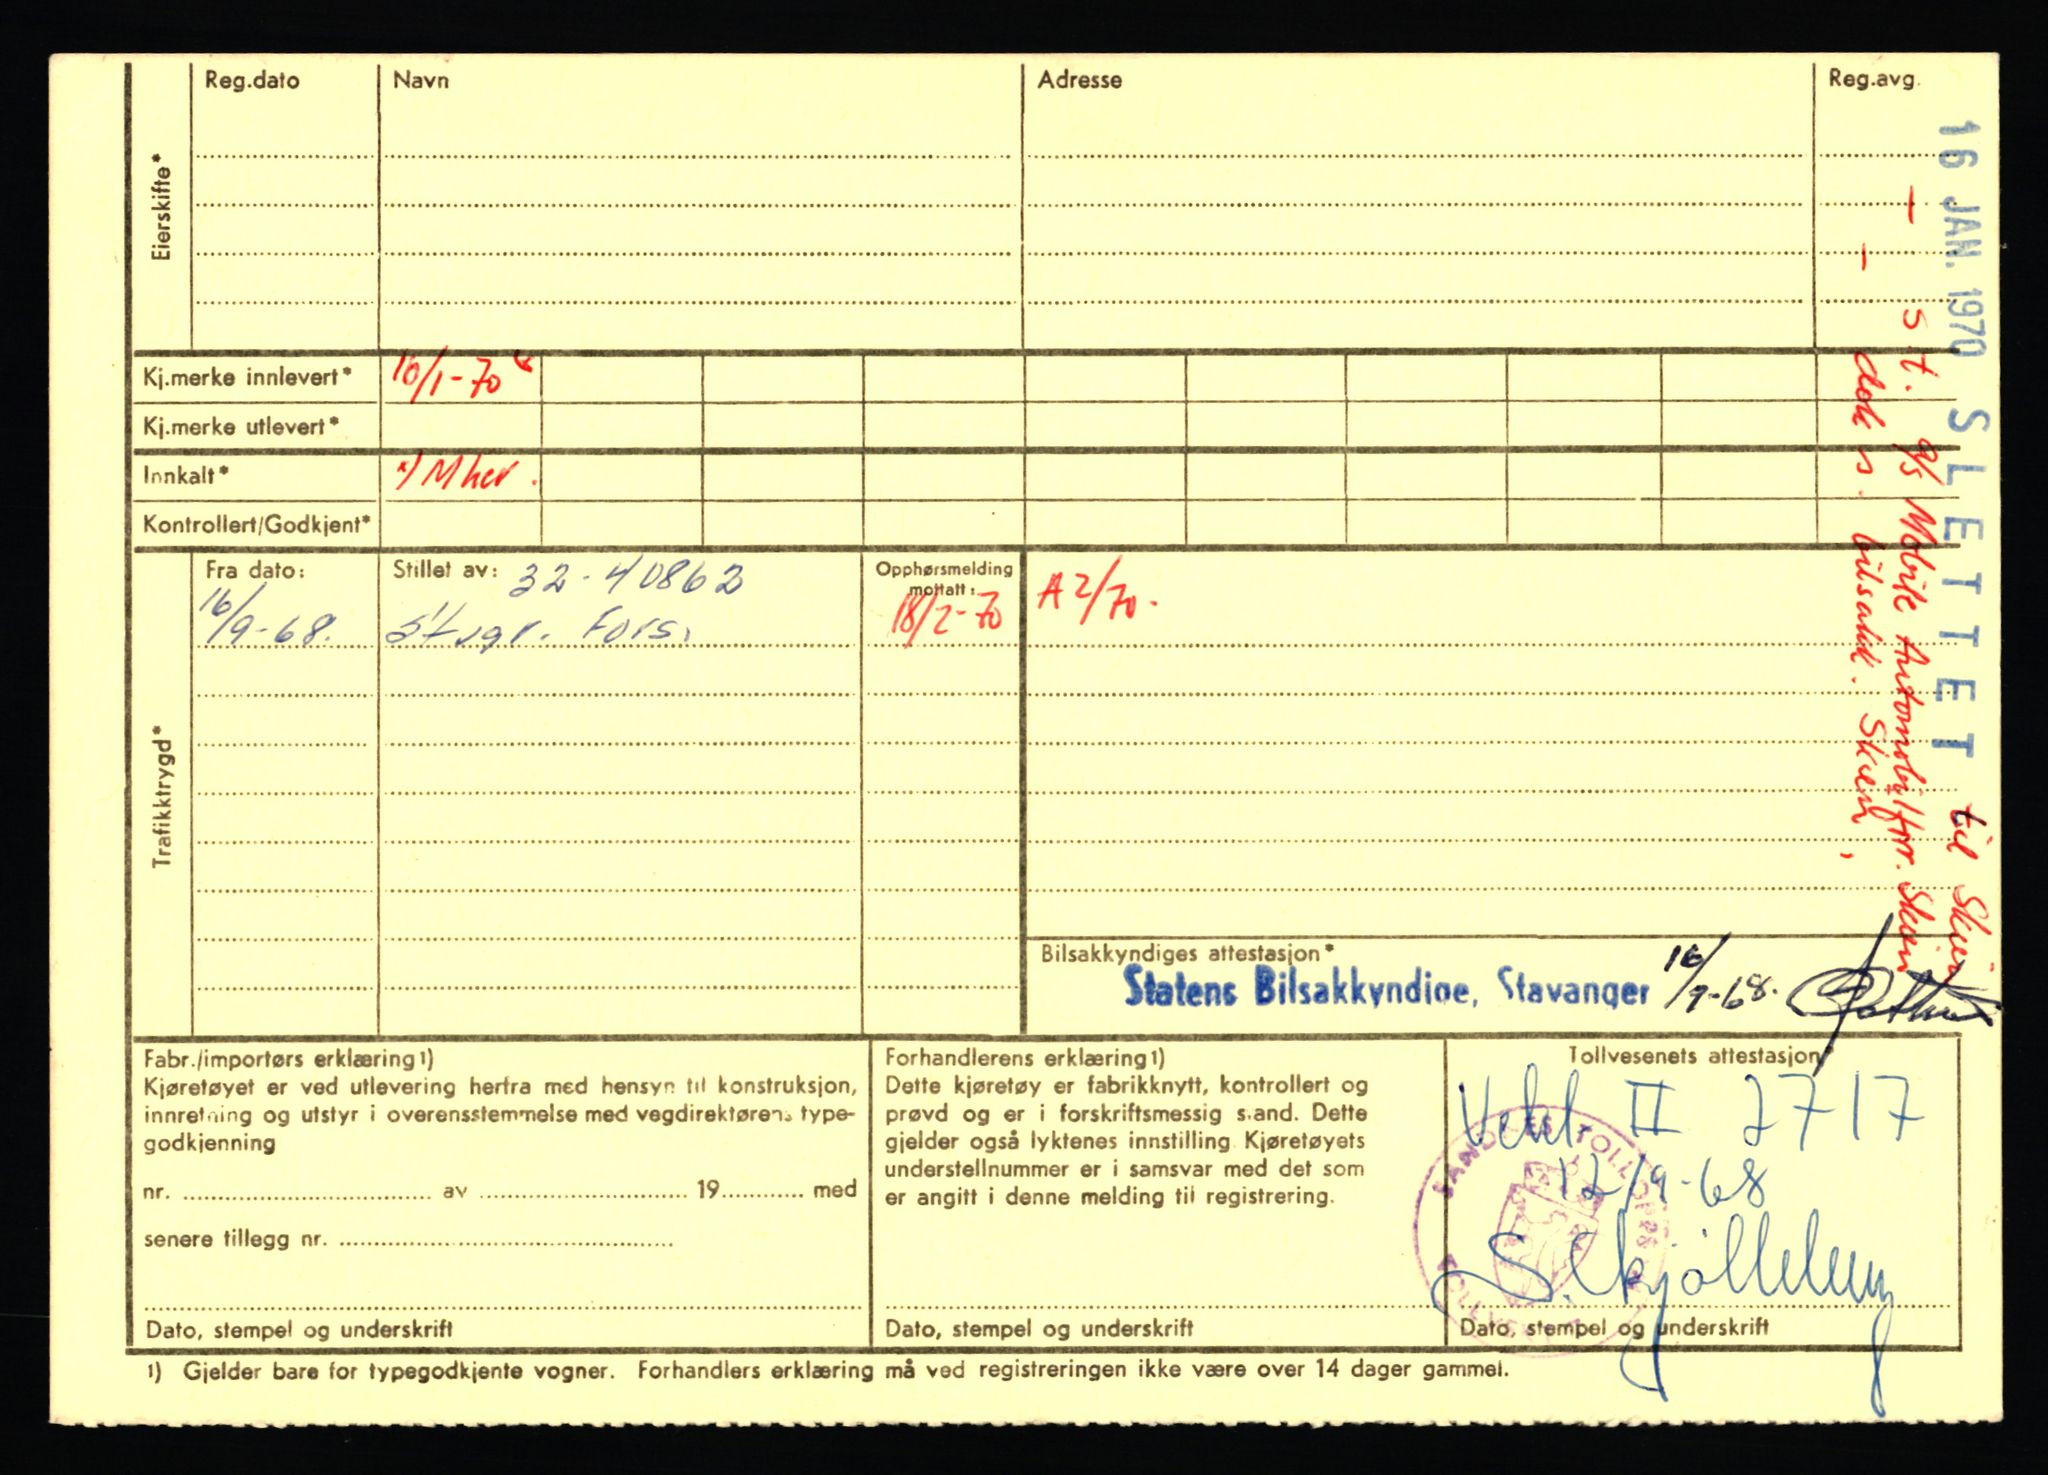 Reg.dato Navn Adresse Reg.avg.
Eierskifte*
Kj.merke innlevert* 16/1-70 x
Kj.merke utlevert*
Innkalt* x) M her.
Kontrollert/Godkjent*
Trafikktrygd*
Fra dato: Stillet av: 32-40862 Opphørsmelding
mottatt:
16/9-68. Stvgr. Fors. 18/2-70 A 2/70.
16 JAN. 1970 SLETTET til Skien
— s.t. a/s Mobile Automobilforr. Skien
— dok s. bilsakk. Skien,
Bilsakkyndiges attestasjon*
Statens Bilsakkyndige, Stavanger 16/9-68.
Fabr./importørs erklæring 1)
Kjøretøyet er ved utlevering herfra med hensyn til konstruksjon,
innretning og utstyr i overensstemmelse med vegdirektørens type-
godkjenning
nr. .......... av .......... 19.......... med
senere tillegg nr. ..........
Dato, stempel og underskrift
Forhandlerens erklæring 1)
Dette kjøretøy er fabrikknytt, kontrollert og
prøvd og er i forskriftsmessig stand. Dette
gjelder også lyktenes innstilling. Kjøretøyets
understellnummer er i samsvar med det som
er angitt i denne melding til registrering.
Dato, stempel og underskrift
Tollvesenets attestasjon*
Vekl II 2717
12/9-68
SANDNES TOLLOPPS
Dato, stempel og underskrift
1) Gjelder bare for typegodkjente vogner. Forhandlers erklæring må ved registreringen ikke være over 14 dager gammel.